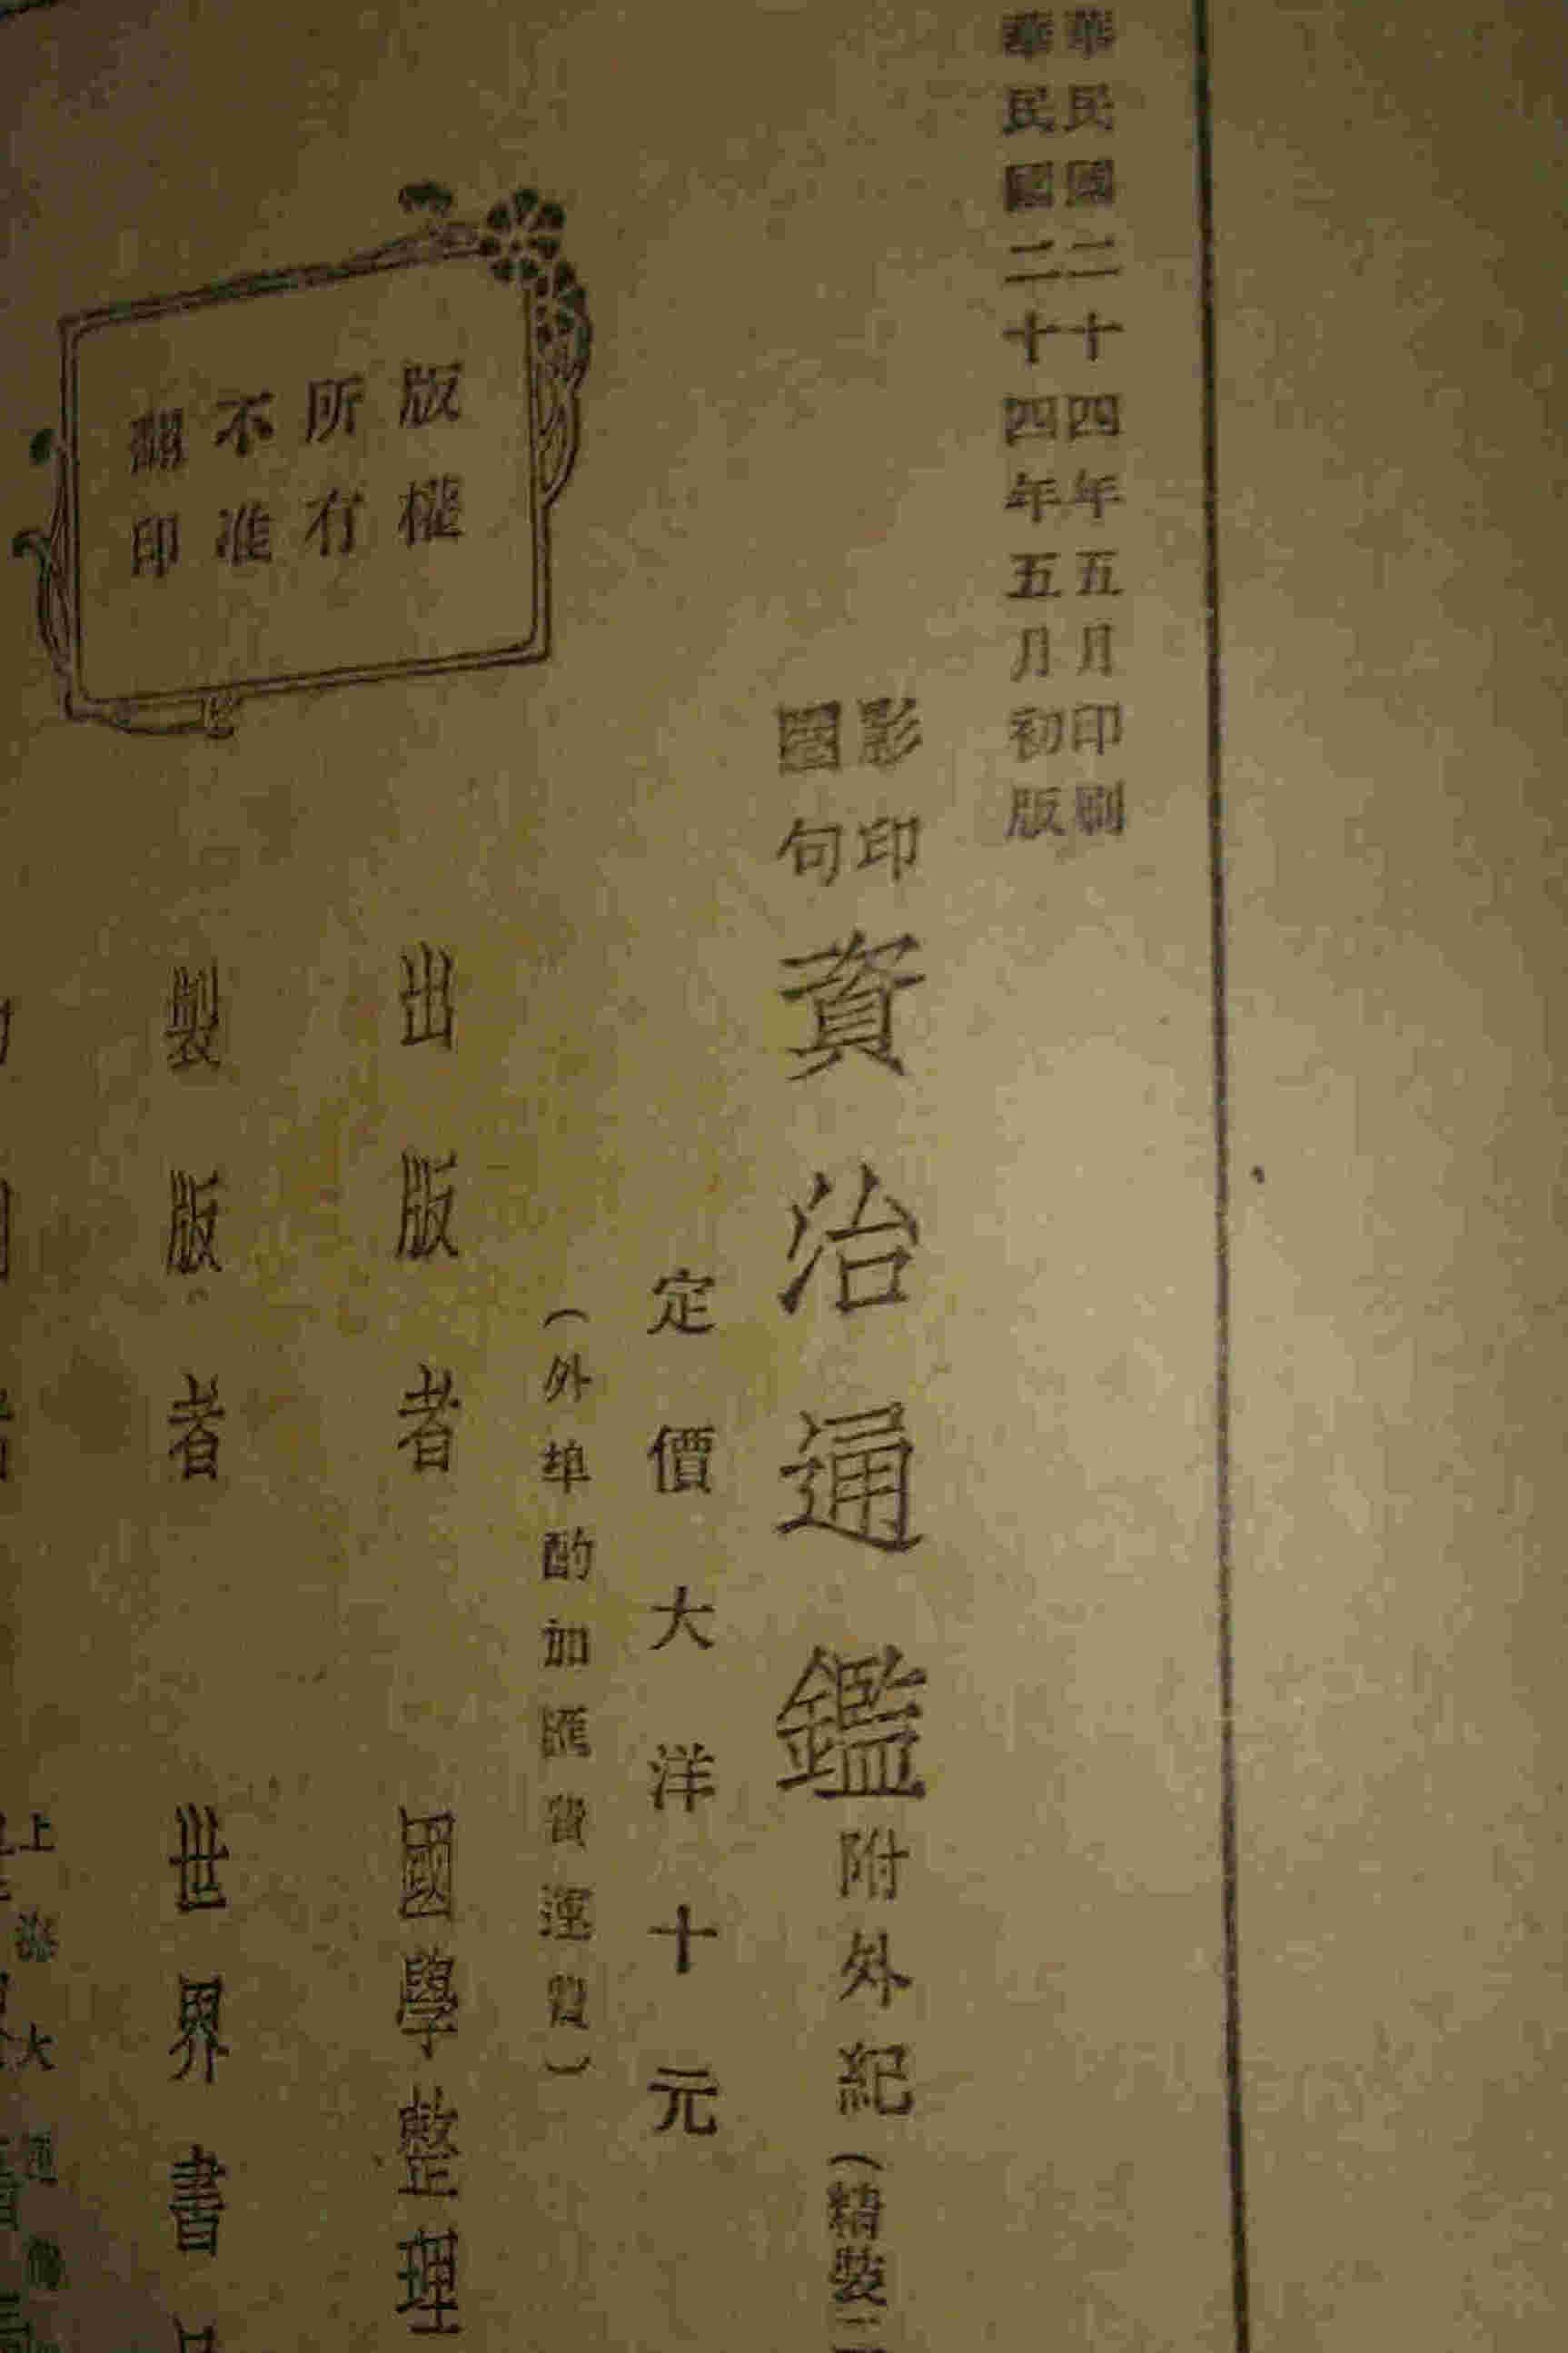 華民國二十四年五月印刷
華民國二十四年五月初版
影印
圈句
資治通鑑附外紀(精裝
定價大洋十元
(外埠酌加匯費運費)
版權
所有
不准
翻印
出版者 國學整理
製版者 世界書
上海大